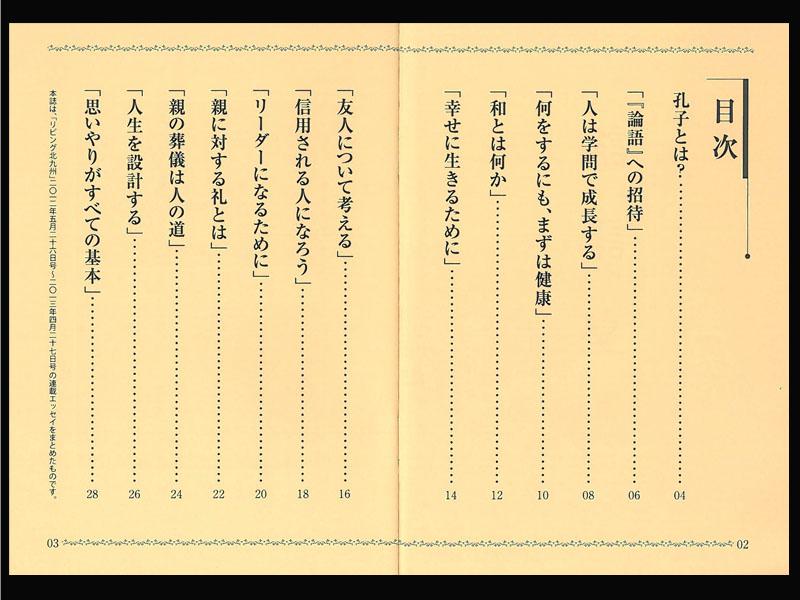 目次
孔子とは?……04
「『論語』への招待」……06
「人は学問で成長する」……08
「何をするにも、まずは健康」……10
「和とは何か」……12
「幸せに生きるために」……14
02
「友人について考える」……16
「信用される人になろう」……18
「リーダーになるために」……20
「親に対する礼とは」……22
「親の葬儀は人の道」……24
「人生を設計する」……26
「思いやりがすべての基本」……28
本誌は、「リビング北九州」二〇一二年五月二十六日号〜二〇一三年四月二十七日号の連載エッセイをまとめたものです。
03